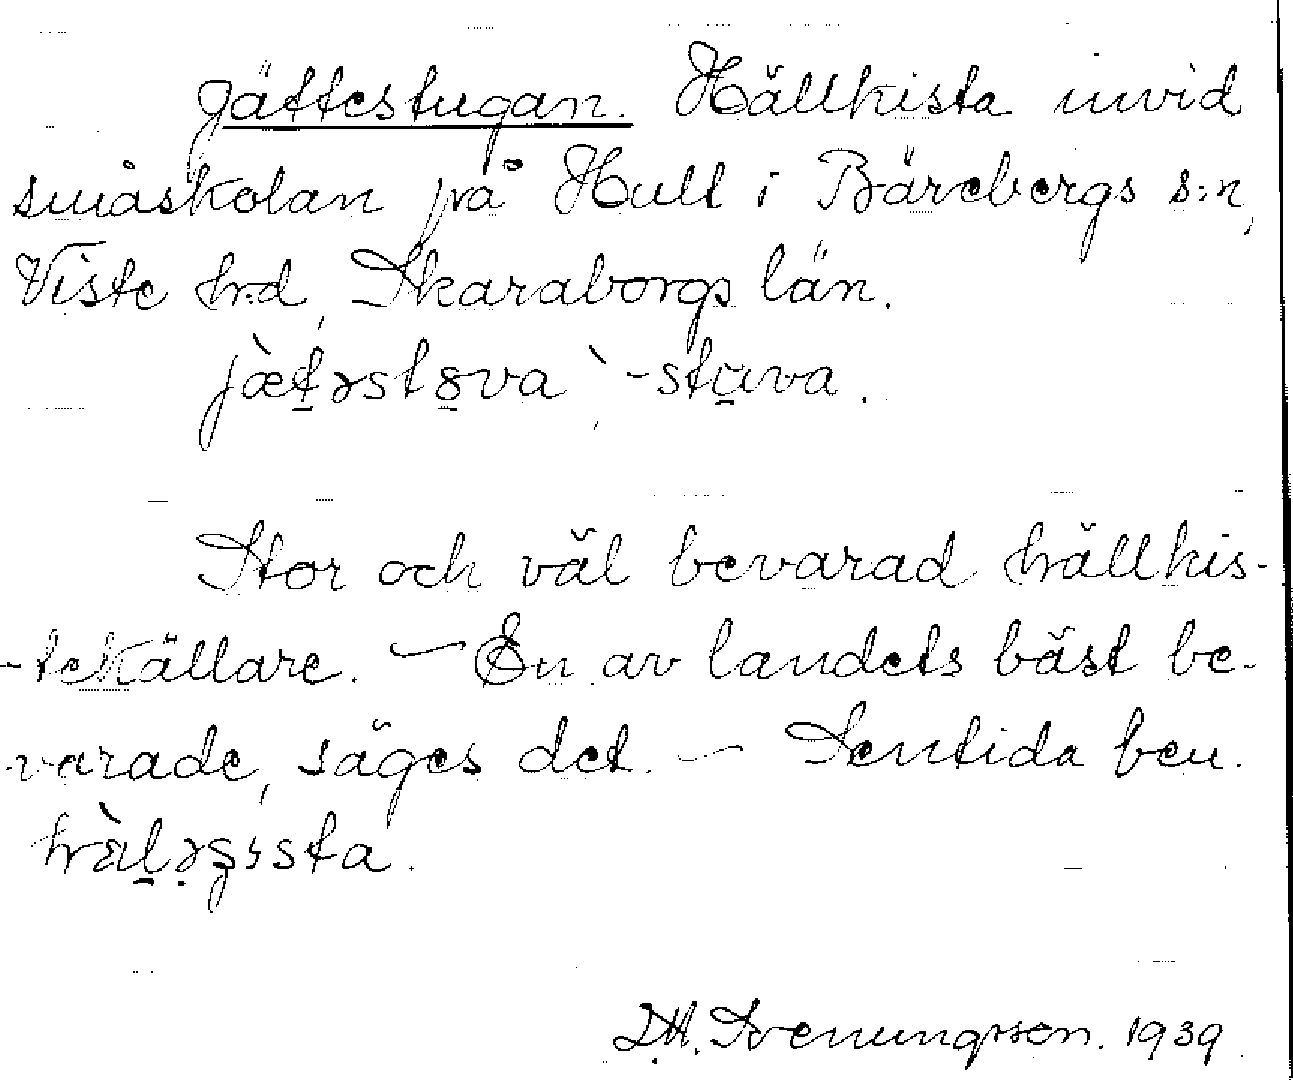 Jättestugan. Hällkista invid
småskolan på Hull i Bärebergs s:n,
Viste hd, Skaraborgs län.
jæ̀t̠əst
-stu̠va.
Stor och väl bevarad hällkis-
-tekällare. — En av landets bäst be-
varade, säges det. — Sentida ben.
D.H. Svenungsson. 1939.